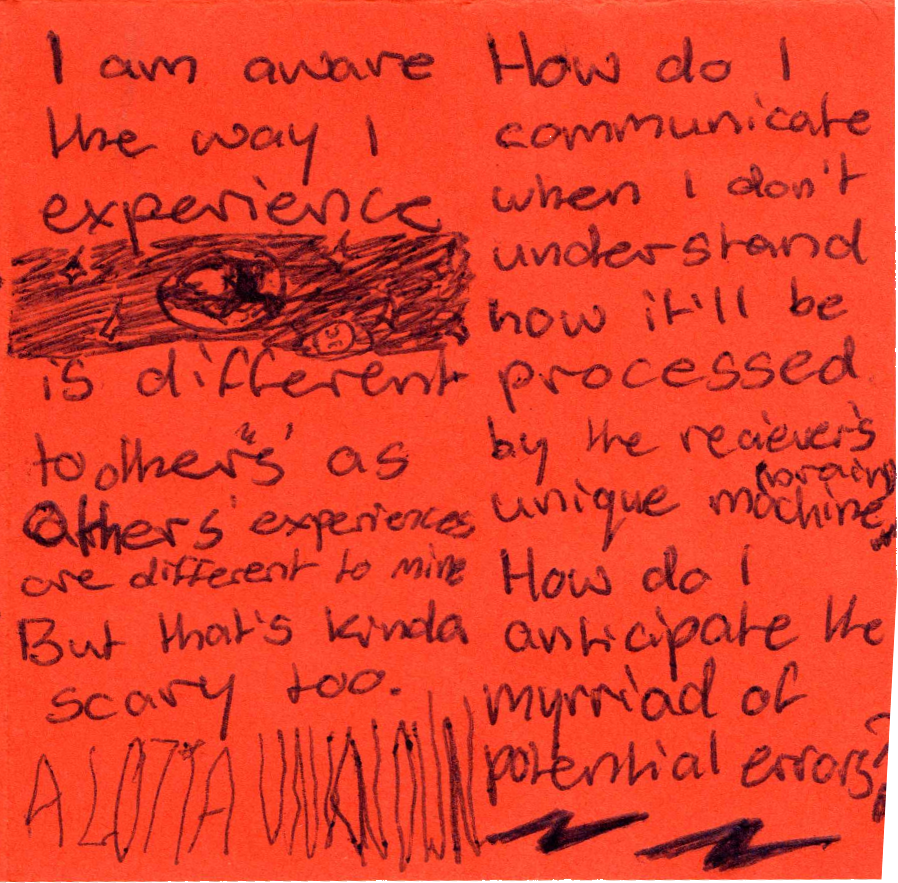 I am aware
the way I
experience
is different
to others' as
others' experiences
are different to mine
But that's kinda
scary too.
A LOTTA UNKNOWN
How do I
communicate
when I don't
understand
how it'll be
processed
by the reciever's
unique (brain)
machine,
How do I
anticipate the
myrriad of
potential errors?